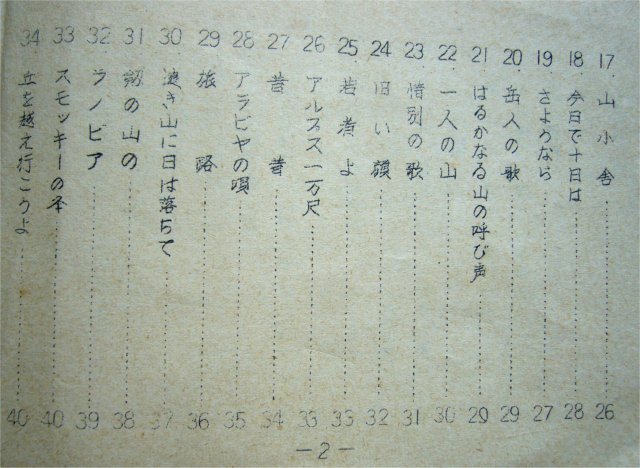 17. 山小舎 26
18. 今日で十日は 28
19. さようなら 27
20. 岳人の歌 29
21. はるかなる山の呼び声 29
22. 一人の山 30
23. 惜別の歌 31
24. 旧い顔 32
25. 若者よ 33
26 アルプス一万尺 33
27 昔昔 34
28 アラビヤの唄 35
29 旅路 36
30 遠き山に日は落ちて 37
31 剱の山の 38
32 ラノビア 39
33 スモッキーの冬 40
34 丘を越え行こうよ 40
-2-